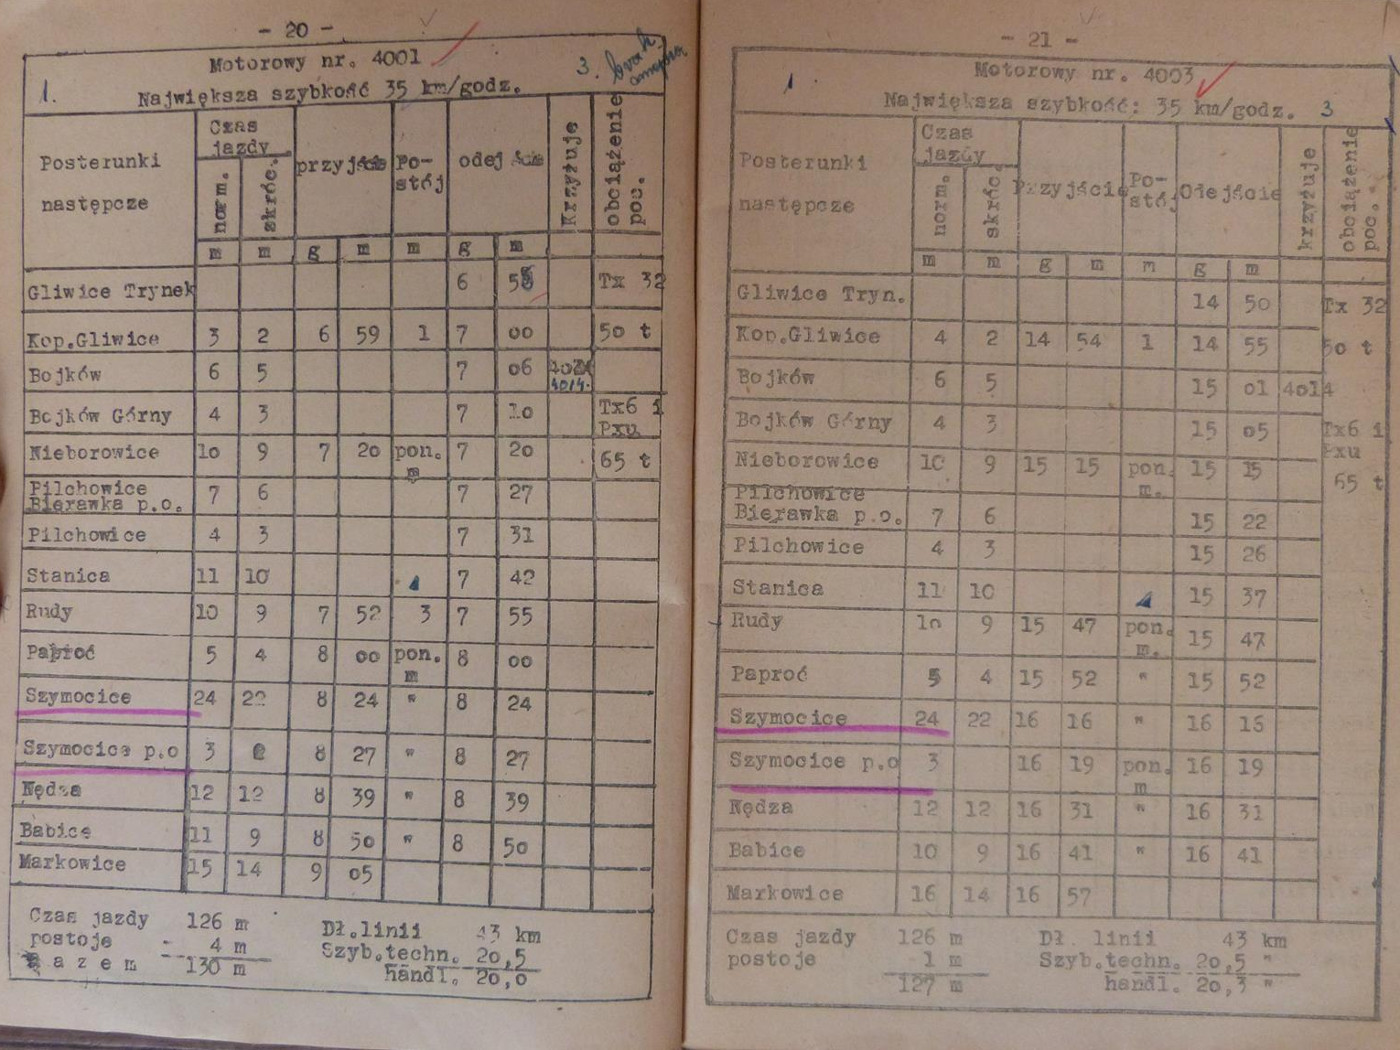 - 20 -
Motorowy nr. 4001
1. 3. brak
Największa szybkość 35 km/godz.
Posterunki następcze Czas jazdy przyjście Postój odejście Krzyżuje obciążenie poc.
norm. skróc.
m m g m m g m
Gliwice Trynek 6 58 Tx 32
Kop.Gliwice 3 2 6 59 1 7 oo 50 t
Bojków 6 5 7 06 4014.
Bojków Górny 4 3 7 1o Tx6 i Pxu
Nieborowice 1o 9 7 2o pon. m 7 2o 65 t
Pilchowice Bierawka p.o. 7 6 7 27
Pilchowice 4 3 7 31
Stanica 11 10 7 42
Rudy 1o 9 7 52 3 7 55
Paproć 5 4 8 oo pon. m 8 oo
Szymocice 24 22 8 24 " 8 24
Szymocice p.o 3 8 27 " 8 27
Nędza 12 12 8 39 " 8 39
Babice 11 9 8 5o " 8 5o
Markowice 15 14 9 o5
Czas jazdy 126 m Dł.linii 43 km
postoje - 4 m Szyb.techn. 2o,5
R a z e m 130 m handl. 2o,o
- 21 -
Motorowy nr. 4003
1
Największa szybkość: 35 km/godz. 3
Posterunki następcze Czas jazdy Przyjście Postój Odejście krzyżuje obciążenie poc.
norm. skróc.
m m g m m g m
Gliwice Tryn. 14 50 Tx 32
Kop.Gliwice 4 2 14 54 1 14 55 50 t
Bojków 6 5 15 o1 4o14
Bojków Górny 4 3 15 o5 Tx6 i Pxu
Nieborowice 10 9 15 15 pon. m. 15 15 65 t
Pilchowice Bierawka p.o. 7 6 15 22
Pilchowice 4 3 15 26
Stanica 11 10 15 37
Rudy 1o 9 15 47 pon. m. 15 47
Paproć 5 4 15 52 " 15 52
Szymocice 24 22 16 16 " 16 16
Szymocice p.o 3 16 19 pon. m 16 19
Nędza 12 12 16 31 " 16 31
Babice 10 9 16 41 " 16 41
Markowice 16 14 16 57
Czas jazdy 126 m Dł. linii 43 km
postoje 1 m Szyb.techn. 2o,5 "
127 m handl. 2o,3 "